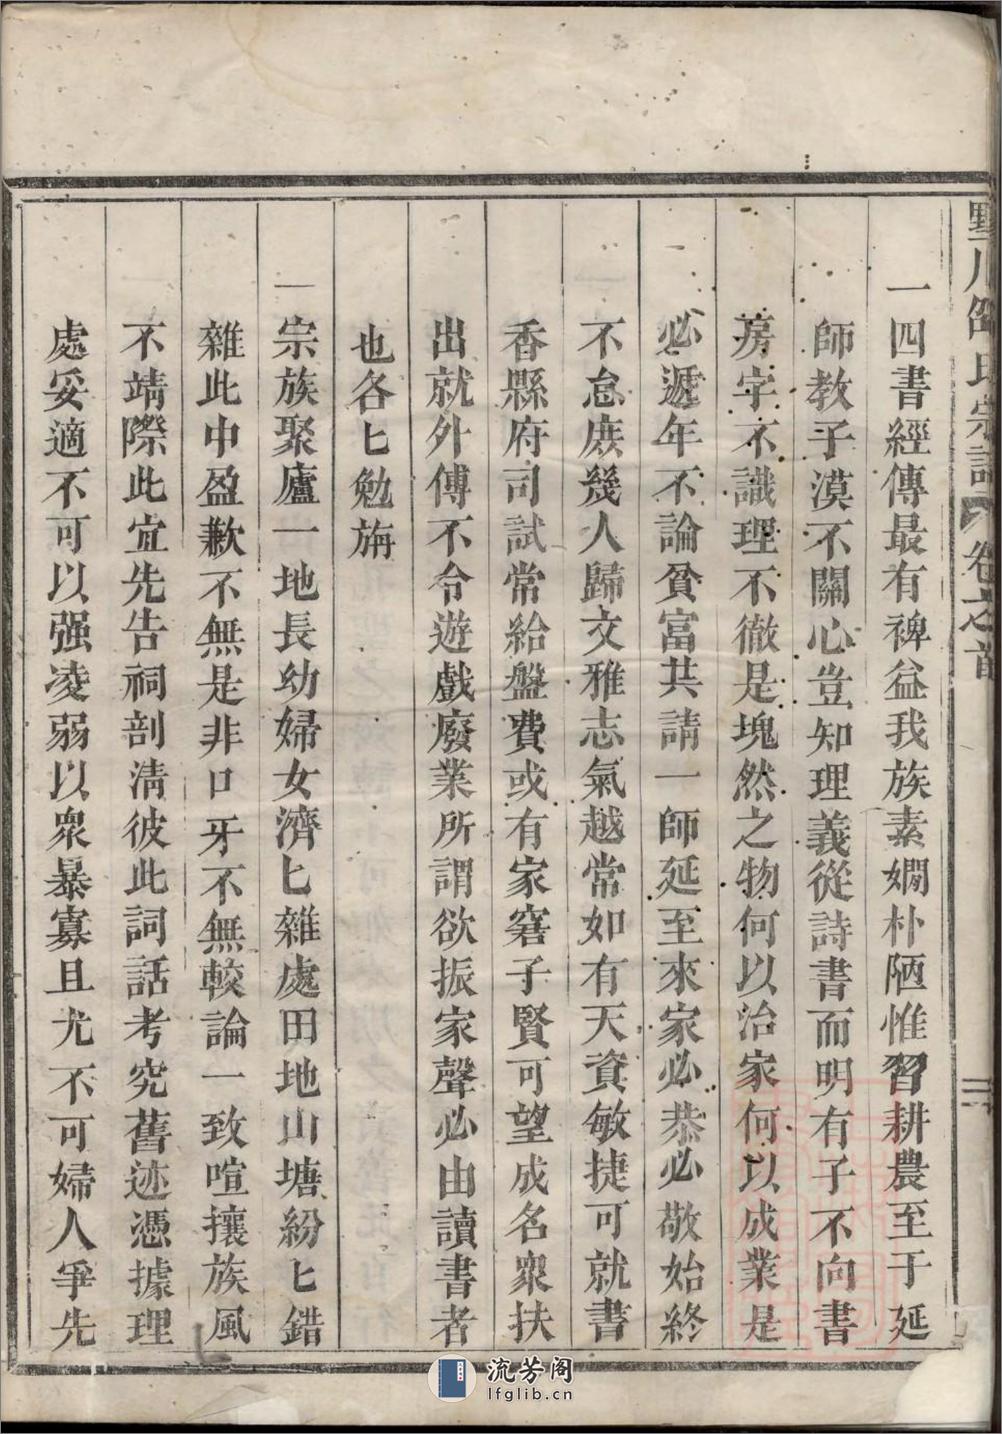 黟川邵氏宗譜 卷之首
一四書經傳最有裨益我族素嫺朴陋惟習耕農至于延
師教子漠不關心豈知理義從詩書而明有子不向書
房字不識理不徹是塊然之物何以治家何以成業是
必遞年不論貧富共請一師延至來家必恭必敬始終
不怠庶幾人歸文雅志氣越常如有天資敏捷可就書
香縣府司試常給盤費或有家窘子賢可望成名衆扶
出就外傅不令遊戲廢業所謂欲振家聲必由讀書者
也各匕勉旃
一宗族聚廬一地長幼婦女濟匕雜處田地山塘紛匕錯
雜此中盈歉不無是非口牙不無較論一致喧攘族風
不靖際此宜先告祠剖淸彼此詞話考究舊迹憑據理
處妥適不可以强凌弱以衆暴寡且尤不可婦人爭先
流芳阁
lfglib.cn